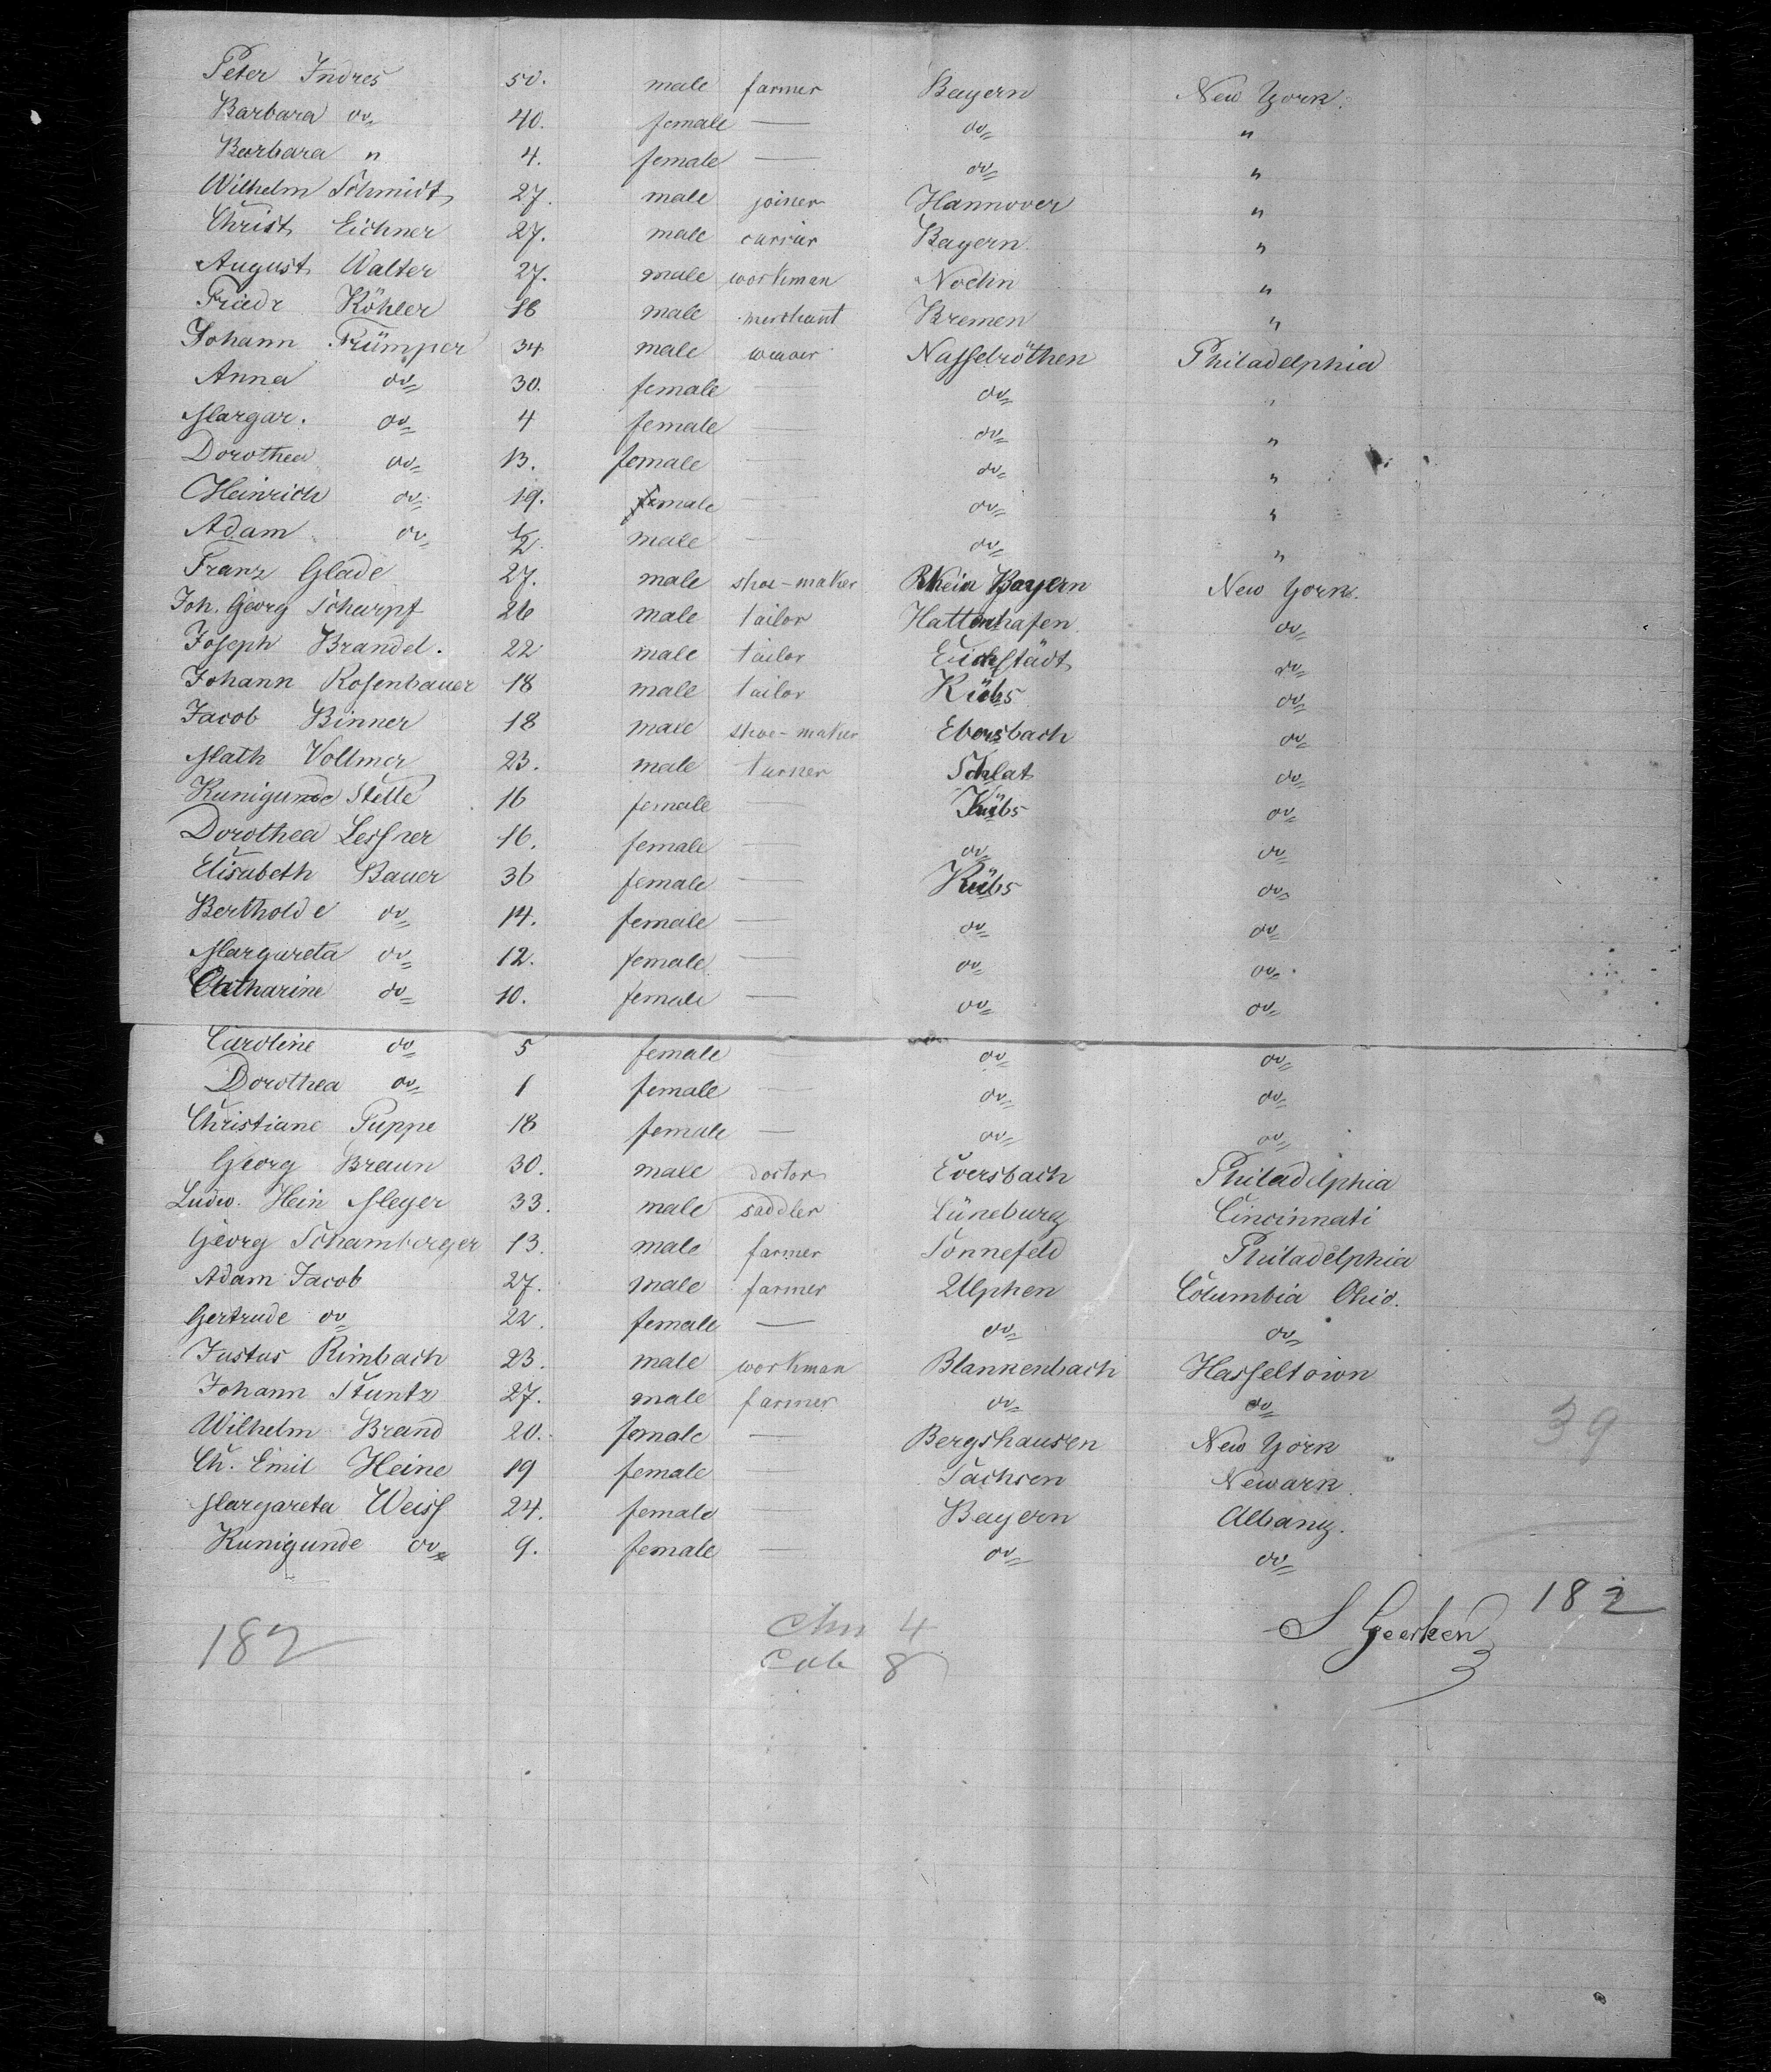 Peter Indres 50. male farmer Bayern New York.
Barbara do 40. female — do "
Barbara " 4. female — do "
Wilhelm Schmidt 27. male joiner Hannover "
Christ Eichner 27. male currier Bayern "
August Walter 27. male workman Nodin "
Friedr Köhler 18 male merchant Bremen "
Johann Trümper 34 male weaver Nasselröthen Philadelphia
Anna do 30. female — do "
Margar. do 4 female — do "
Dorothea do 13. female — do "
Heinrich do 19. male — do "
Adam do 1/2 male — do "
Franz Glade 27. male shoe-maker Rhein Bayern New York.
Joh. Georg Scharpf 26 male tailor Hattenhafen do
Joseph Brandel. 22 male tailor Eichstädt do
Johann Rosenbauer 18 male tailor Kübs do
Jacob Binner 18 male shoe-maker Ebersbach do
Math Vollmer 23. male turner Schlat do
Kunigunde Stette 16 female — Kübs do
Dorothea Lessner 16. female — do do
Elisabeth Bauer 36 female — Kübs do
Bertholde do 14. female — do do
Margareta do 12. female — do do
Catharine do 10. female — do do
Caroline do 5 female — do do
Dorothea do 1 female — do do
Christiane Puppe 18 female — do do
Georg Braun 30. male doctor Eversbach Philadelphia
Ludw. Hein Meyer 33. male saddler Lüneburg Cincinnati
Georg Schamberger 13. male farmer Sonnefeld Philadelphia
Adam Jacob 27. male farmer Ulphen Columbia Ohio.
Gertrude do 22. female — do do
Justus Rimbach 23. male workman Blankenbach Hasseltown
Johann Stuntz 27. male farmer do do
Wilhelm Brand 20. female — Bergshausen New York
Ch. Emil Heine 19 female — Sachsen Newark.
Margareta Weiss 24. female — Bayern Albany.
Kunigunde do 9. female — do do
39
182
S Geerken
182
4
Cab 8